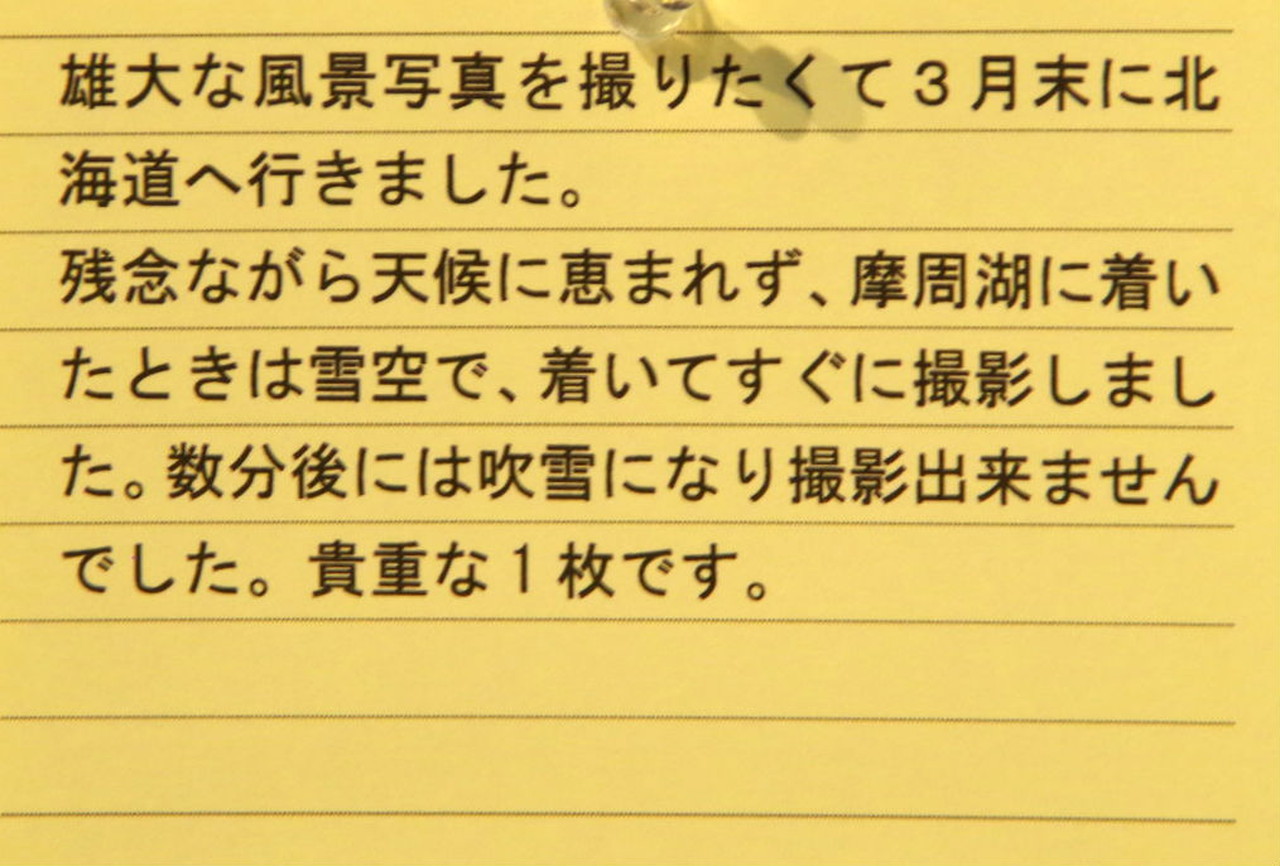 雄大な風景写真を撮りたくて３月末に北
海道へ行きました。
残念ながら天候に恵まれず、摩周湖に着い
たときは雪空で、着いてすぐに撮影しまし
た。数分後には吹雪になり撮影出来ません
でした。貴重な１枚です。